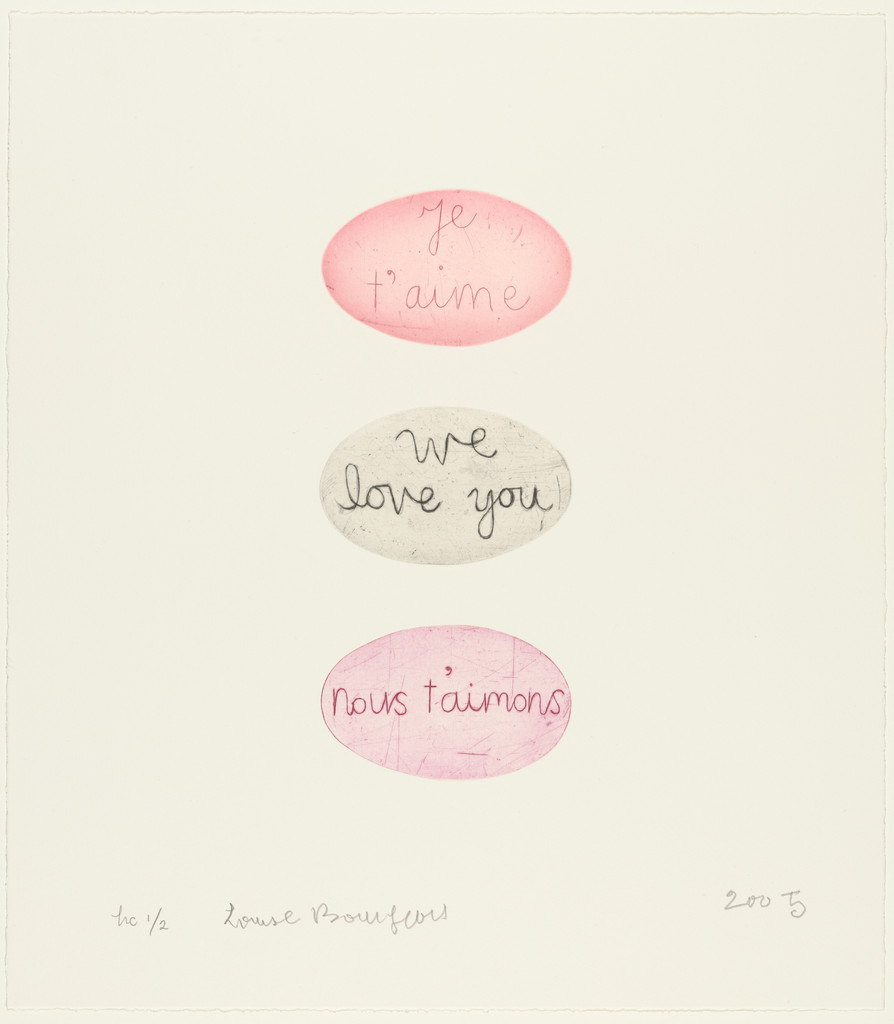 je
t'aime
we
love you
nous t'aimons
hc 1/2 Louise Bourgeois 2005